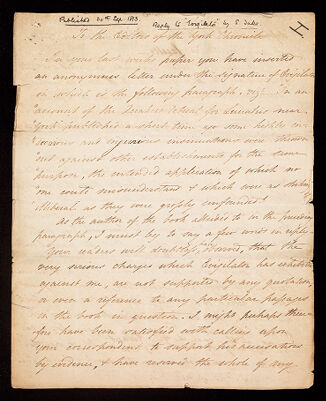 Published 30th Sep. 1813
Reply to "Vigilator" by S. Tuke
To the Editors of the York Chronicle
In your last weeks paper you have inserted
an anonymous letter under the signature of Vigilator
in which is the following paragraph, viz. "In an
"account of the Quakers Retreat for Lunatics near
"York published a short time ago some highly in-
"decorous and injurious insinuations were thrown
"out against other establishments for the same
"purpose, the intended application of which no
"one could misunderstand & which were as
illiberal as they were grossly unfounded."
As the author of the book alluded to in the preceding
paragraph, I must beg to say a few words in reply.
Your readers will doubtless observe, that the
very serious charges which Vigilator has exhibited
against me, are not supported by any quotation,
or even a reference to any particular passages
in the book in question. I might perhaps there-
fore have been satisfied with calling upon
your correspondent to support his accusations
by evidence, & have reserved the whole of my